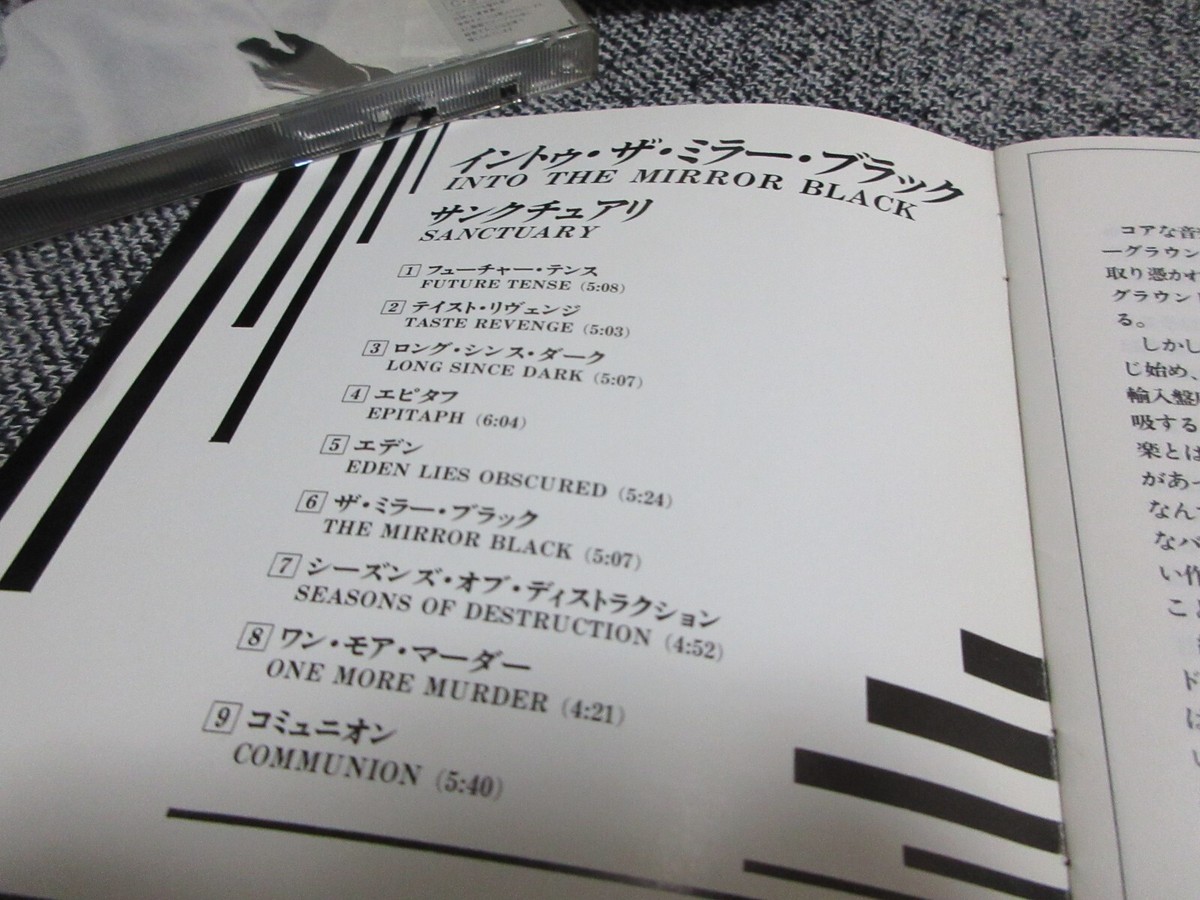 イントゥ・ザ・ミラー・ブラック
INTO THE MIRROR BLACK
サンクチュアリ
SANCTUARY
1 フューチャー・テンス
FUTURE TENSE (5:08)
2 テイスト・リヴェンジ
TASTE REVENGE (5:03)
3 ロング・シンス・ダーク
LONG SINCE DARK (5:07)
4 エピタフ
EPITAPH (6:04)
5 エデン
EDEN LIES OBSCURED (5:24)
6 ザ・ミラー・ブラック
THE MIRROR BLACK (5:07)
7 シーズンズ・オブ・ディストラクション
SEASONS OF DESTRUCTION (4:52)
8 ワン・モア・マーダー
ONE MORE MURDER (4:21)
9 コミュニオン
COMMUNION (5:40)
コアな音
ーグラウン
取り憑かれ
グラウン
る。
しかし
じ始め、
輸入盤
吸する
楽とは
があっ
なんで
なバ
い作
こ